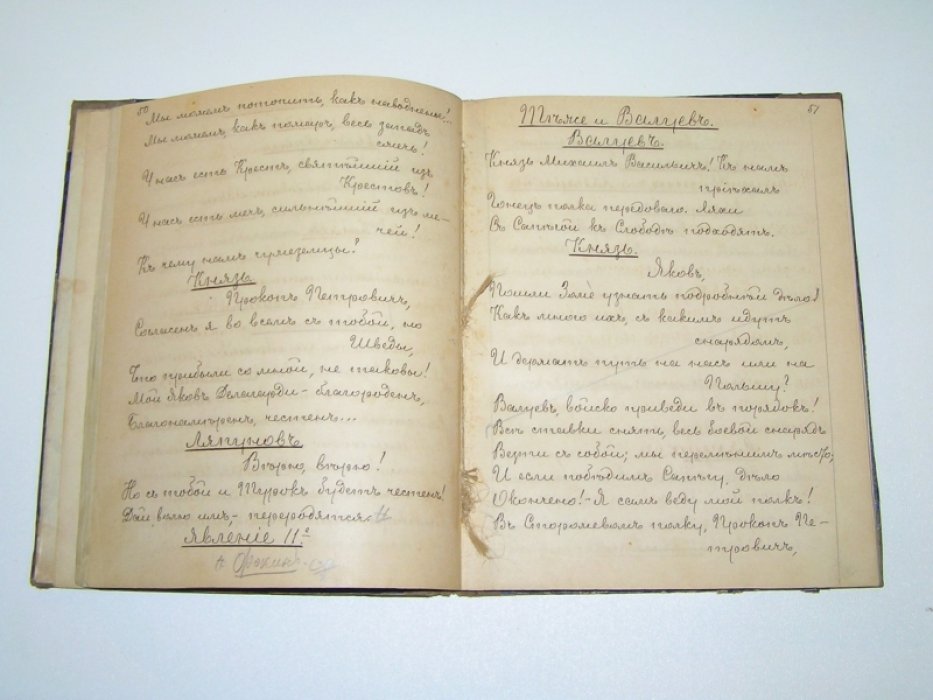 50
Мы можемъ потопить, какъ наводненье!..
Мы можемъ, какъ пожаръ, весь западъ
сжечь!
У насъ есть Крестъ, святѣйшій изъ
Крестовъ!
У насъ есть мечъ, сильнѣйшій изъ ме-
чей!
Къ чему намъ чужеземцы?
Князь.
Прокопъ Петровичъ,
Согласенъ я во всемъ съ тобой, но
Шведы,
Что прибыли со мной, не таковы!
Мой Яковъ Делагарди - благороденъ,
Благонамѣренъ, честенъ...
Ляпуновъ
Вѣрю, вѣрю!
Но съ тобой и Турокъ будетъ честенъ!
Дай волю имъ,- переродятся
Явленіе 11.
51
Тѣже и Валуевъ.
Валуевъ.
Князь Михаилъ Васильичъ! Къ намъ
пріѣхалъ
Гонецъ полка передоваго. Ляхи
Въ Сапѣгой къ Слободѣ подходятъ.
Князь.
Яковъ,
Пошли узнать подробнѣй дѣло!
Какъ много ихъ, съ какимъ идутъ
снарядомъ,
И держатъ путь на насъ или на
Польшу?
Валуевъ, войско приведи въ порядокъ!
Всѣ ставки снять, весь боевой снарядъ
Везти съ собой; мы перемѣнимъ мѣсто;
И если побѣдимъ Сапѣгу, дѣло
Окончено! - Я самъ веду мой полкъ!
Въ Сторожевомъ полку, Прокопъ Пе-
тровичъ,